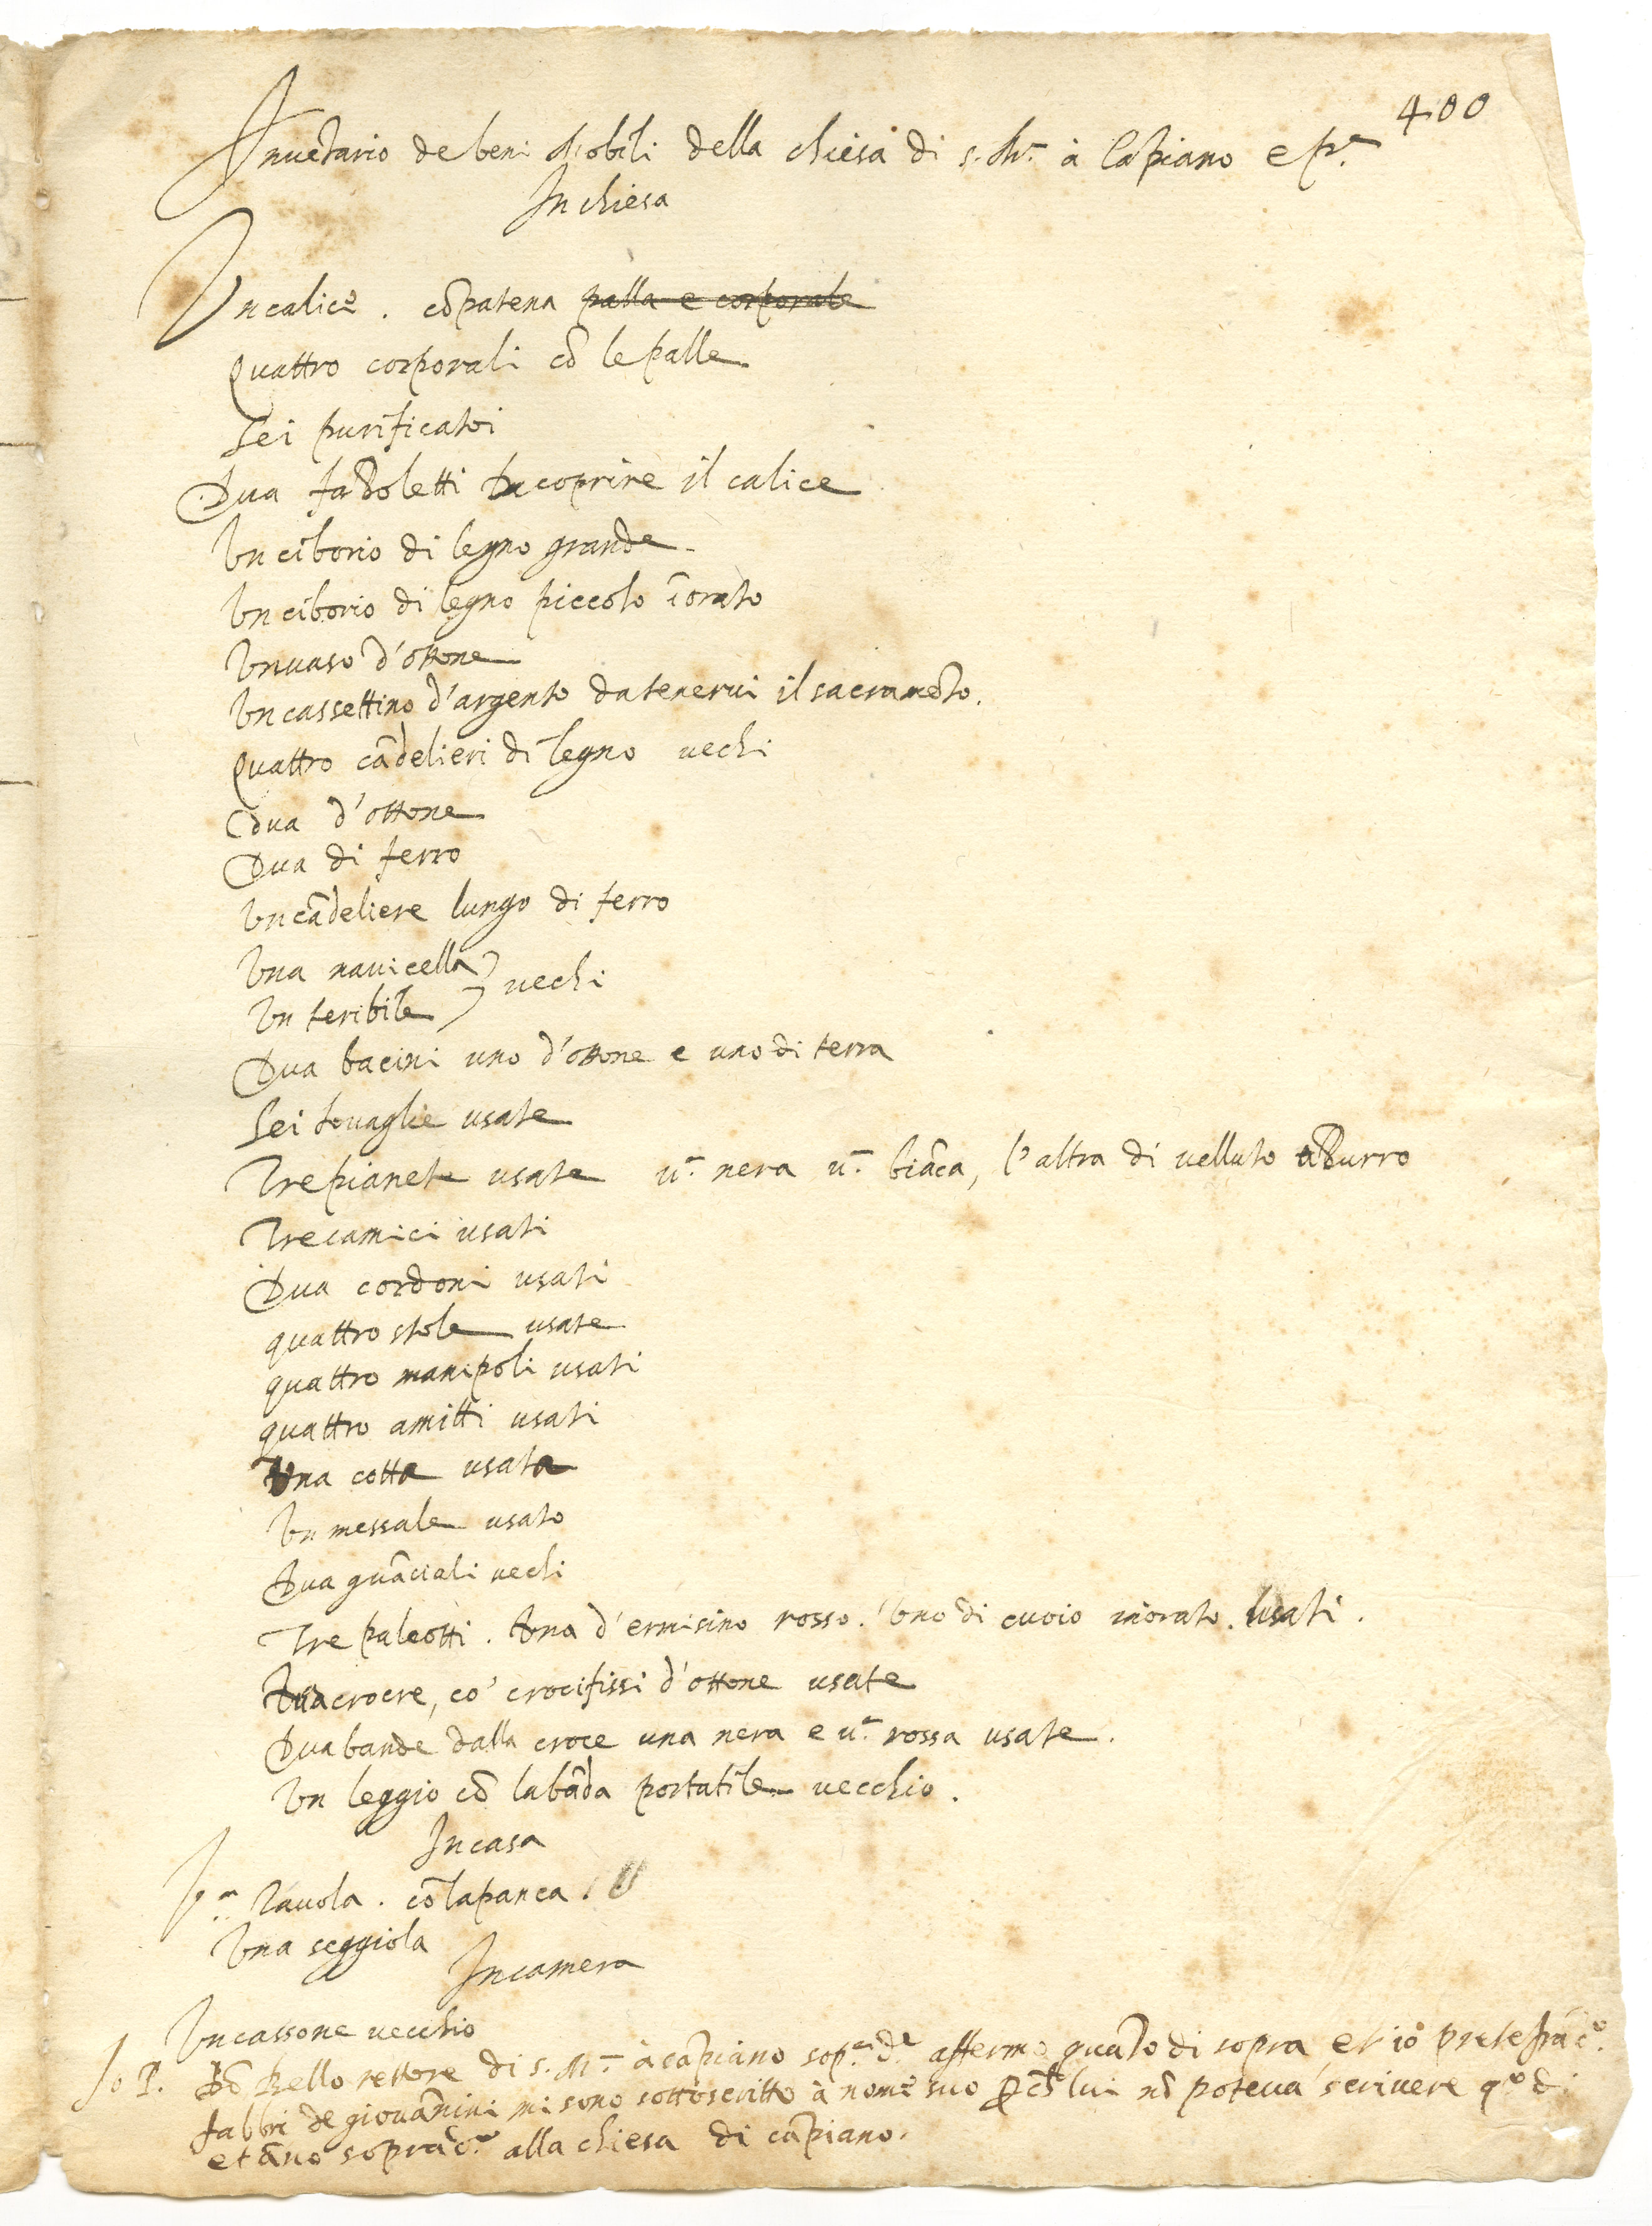 400
Inuētario de beni Mobili della chiesa di s. Mr.ª à Cāpiano e pr.ª
In chiesa
Un calice . cō patena palla e corporale
Quattro corporali cō le palle
Sei purificatoi
Dua fazoletti da coprire il calice
Un ciborio di legno grande
Un ciborio di legno piccolo īorato
Un uaso d'ottone
Un cassettino d'argento da tenerui il sacramēto.
Quattro cādelieri di legno uechi
E dua d'ottone
Dua di ferro
Un cādeliere lungo di ferro
Una nauicella
uechi
Un teribile
Dua bacini uno d'ottone e uno di terra
Sei touaglie usate
Tre pianete usate u.ª nera u.ª biāca, l'altra di uelluto azurro
Tre camici usati
Dua cordoni usati
quattro stole usate
quattro manipoli usati
quattro amitti usati
Una cotta usata
Un messale usato
Dua guāciali uechi
Tre paleotti . Una d'ermisino rosso. Uno di cuoio inorato. Usati .
Dua croere, co' crocifissi d'ottone usate
Dua bande dalla croce una nera e u.ª rossa usate .
Un leggio cō la bāda portatile uecchio .
In casa
U.ª Tauola . cō la panca .
Una seggiola
In camera
Un cassone uecchio
Io P. rettore di s. M.ª à cāpiano sop.ª d.ª affermo quāto di sopra et io prete frāc.º
fabbri de giouānini mi sono sottoscritto à nome suo lui nō poteua scriuere q.º dì
et āno soprad.º alla chiesa di cāpiano.